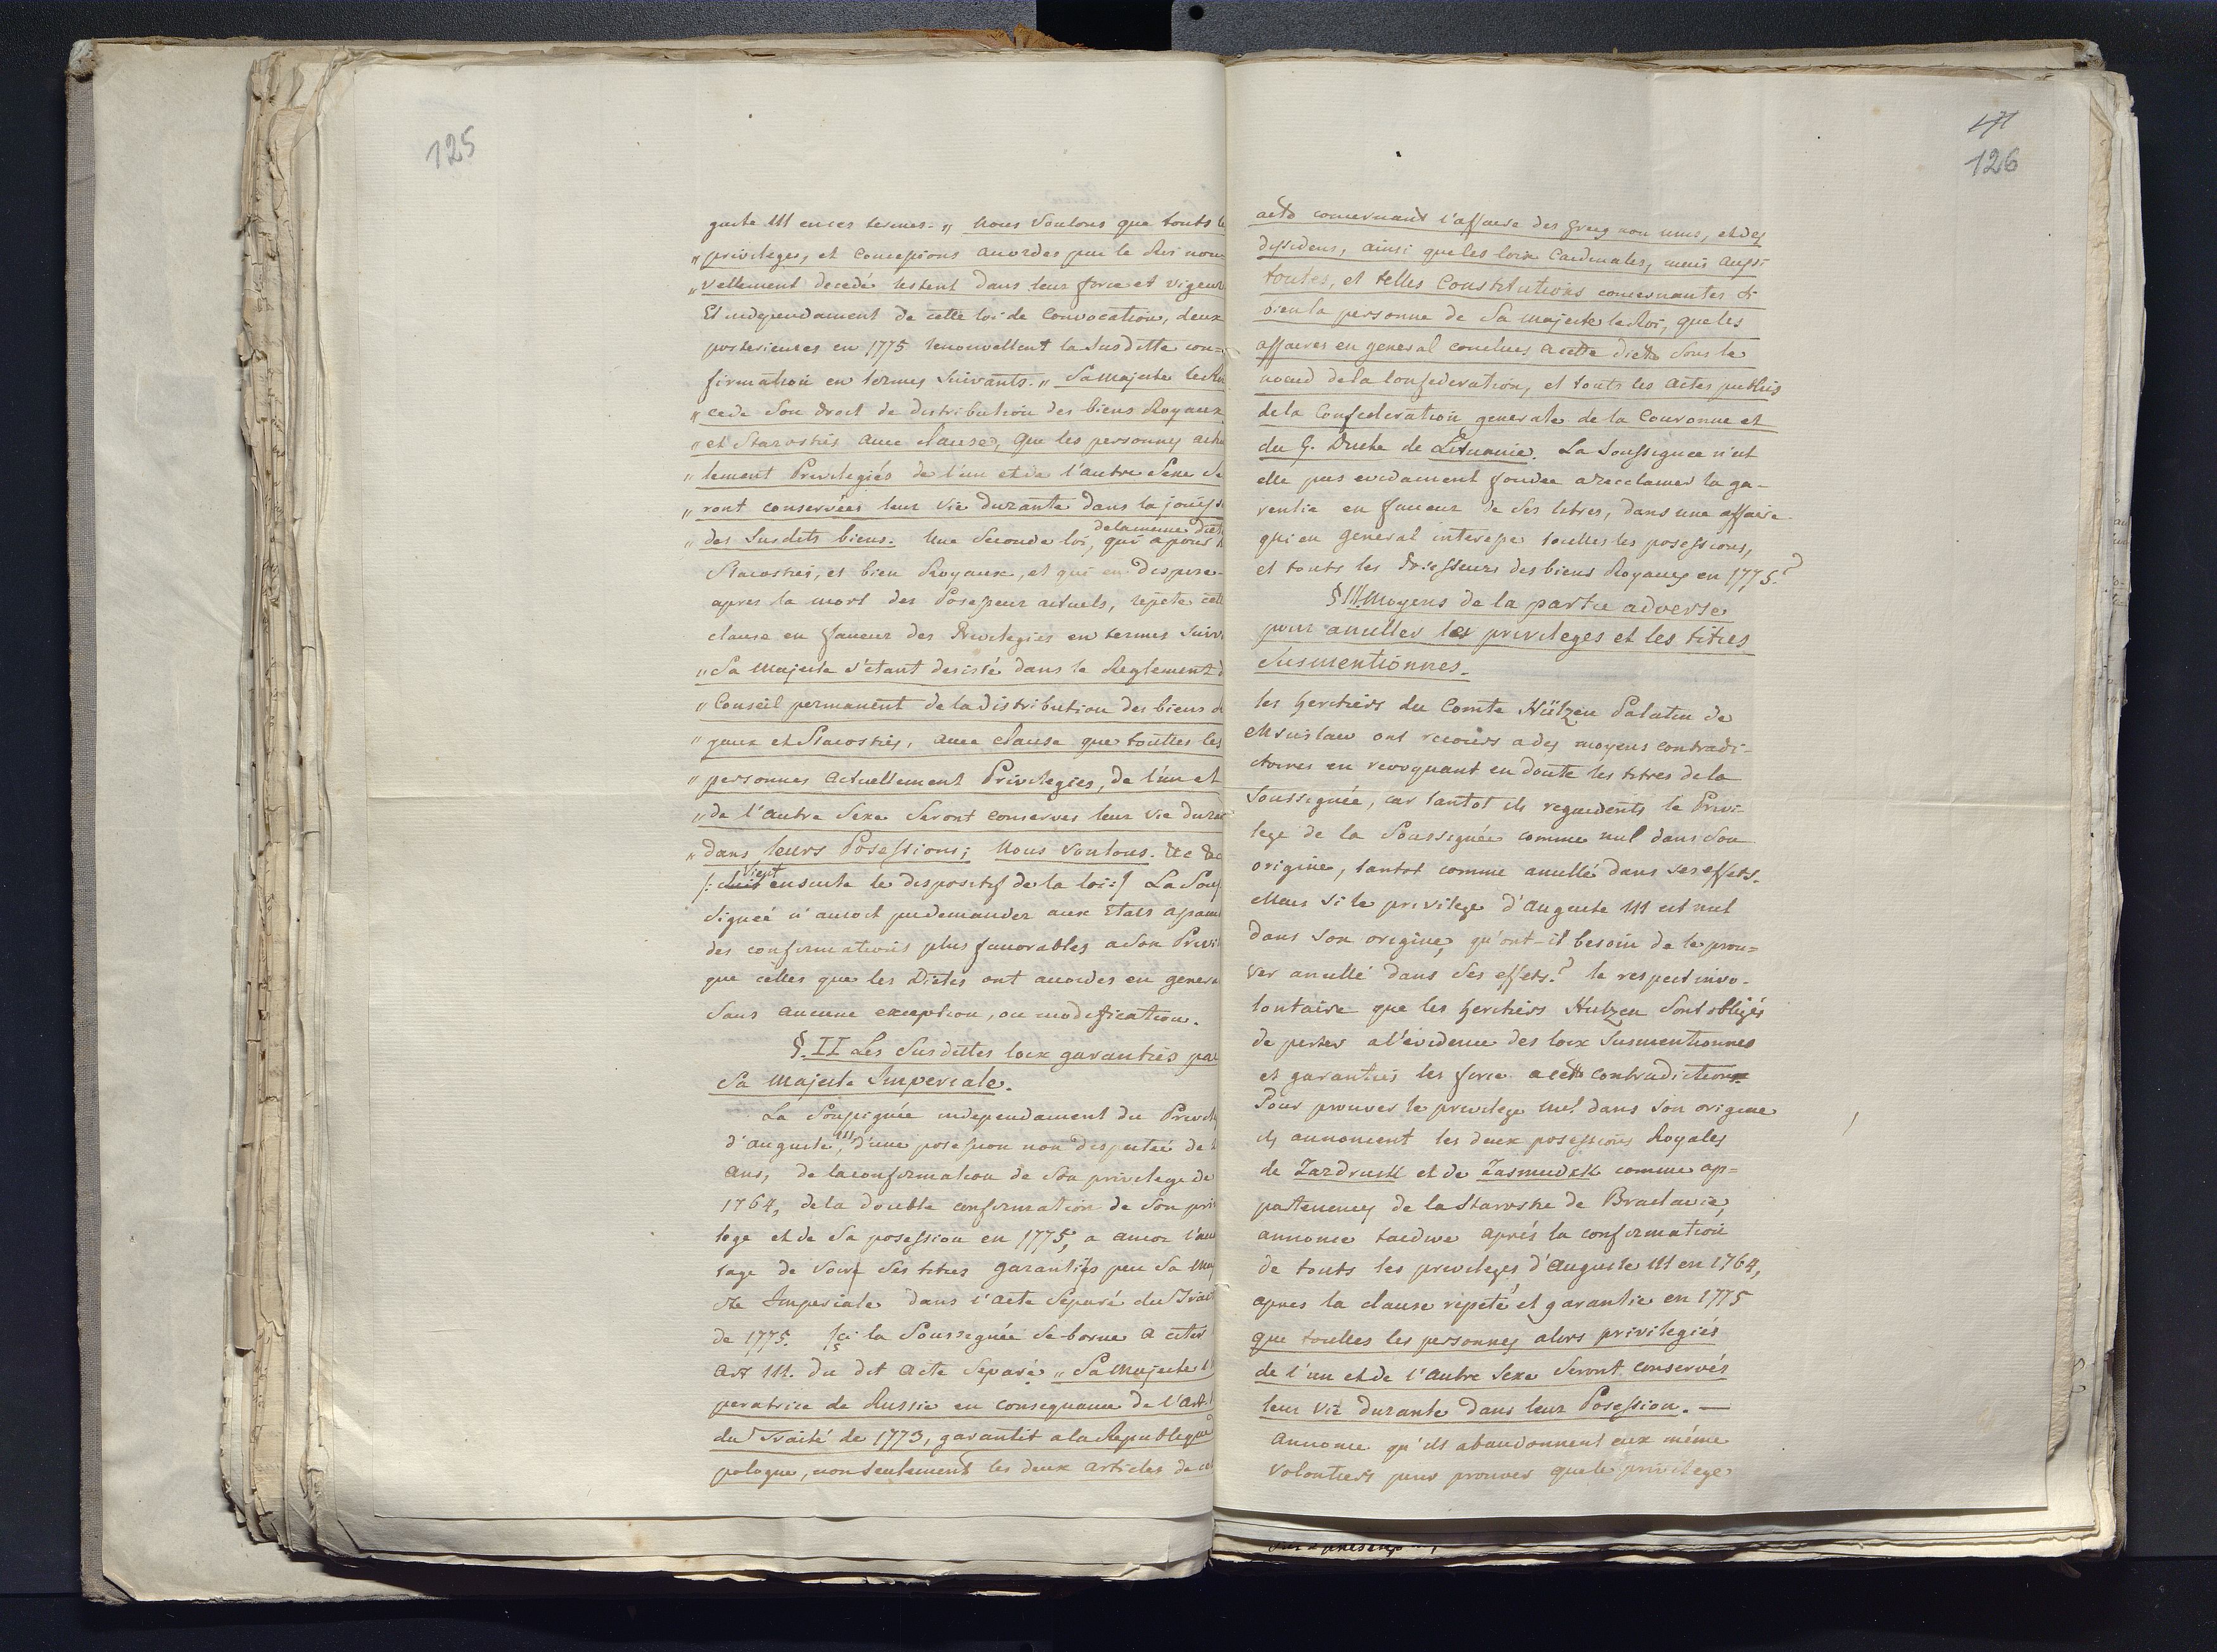 125
guste III en ces termes. „ Nous Voulons que touts
„ privileges, et Concessions accordes par le Roi nou
„ vellement decedé restent dans leur force et vigeur
Et independament de cette loi de Convocation, deux
posterieures en 1775 renouvellent la Susditte con=
firmation en termes Suivants. „ Sa Majeste le Roi
„ cede Son droit de distribution des biens Royaux
„ et Starosties avec clause, que les personnes actu
„ lement Privilegiés de l'un et de l'autre Sexe Se
„ ront conservées leur Vie durante dans la jouiss
„ des Susdits biens. Une Seconde loi, de la meme Diet
qui a pour
Starosties, et bien Royaux, et qui en dispose
apres la mort des Possesseur actuels, repete cett
clause en faveur des Privilegiés en termes Suiv
„ Sa Majeste s'etant desisté dans le Reglement d
„ Conseil permanent de la distribution des biens
„ yaux et Starosties, avec clause que touttes les
„ personnes Actuellement Privilegies, de l'un et
„ de l'autre Sexe Seront conserves leur Vie dura
„ dans leurs Posessions; Nous Voulons. etc etc
/: Vient ensuite le dispositif de la loi :/ La Sous
Signeé n'auroit pu demander aux Etats assam
des confirmations plus favorables a Son Privi
que celles que les Dietes ont accordes en genera
Sans aucune exception, ou modification.
§. II Les Susdittes loix garanties par
Sa Majeste Imperiale.
La Soussignée independament du Privil
d'Auguste III, d'une posession non disputée de
Ans, de la confirmation de Son privilege de
1764, de la double confirmation de Son pri
lege et de Sa posession en 1775, a encor l'avan
tage de voir Ses titres garantis par Sa Maj
ste Imperiale dans l'acte Separé du Trait
de 1775. Ici la Soussignée Se borne a citer
Art III. du dit Acte Separé „ Sa Majeste I
peratrice de Russie en consequance de l'Art.
du Traité de 1773, garantit a la Republique
pologne, non Seulement les deux articles de ce
171
126
acte concernant l'affaire des Grecs non unis, et des
dissidens, ainsi que les loix Cardinales, mais aussi
toutes, et telles Constitutions concernantes Si
bien la personne de Sa Majeste le Roi, que les
affaires en general conclues a cette diette Sous le
noeud de la Confederation, et touts les actes publics
de la Confederation generale de la Couronne et
du G. Duche de Lituanie. La Soussignee n'est
elle pas evidament fondee a recclamer la ga-
rentie en faveur de Ses titres, dans une affaire
qui en General interesse touttes les posessions,
et touts les Posesseurs des biens Royaux en 1775.?
§ III. Moyens de la partie adverse
pour anuller les privileges et les titres
Susmentionnes.
les heritiers du Comte Hülzen Palatin de
Mscislaw ont recours a des moyens contradi-
ctoires en revoquant en doute les titres de la
Soussignée, car tantot ils regardents le Privi-
lege de la Soussignée comme nul dans Son
origine, tantot comme anullé dans ses effets.
Mais Si le privilege d'Auguste III est nul
dans Son origine, qu'ont-il besoin de le prou=
ver anullé dans Ses effets.? le respect invo-
lontaire que les heritiers Hulzen Sont obligés
de porter a l'évidence des loix Susmentionnes
et garanties les force a cette contradiction.
Pour prouver le privilege nul dans Son origine
ils annoncent les deux posessions Royales
de Zardrusti et de comme ap=
partenences de la Starostie de Braclavie,
annonce tardive aprés la confirmation
de touts les privileges d'Auguste III en 1764,
apres la clause répeté et garantie en 1775
que touttes les personnes alors privilegiés
de l'un et de l'autre Sexe Seront conservés
leur Vie durante dans leur Posession. —
Annonce qu'ils abandonnent eux méme
Volontiers pour prouver que le privilege